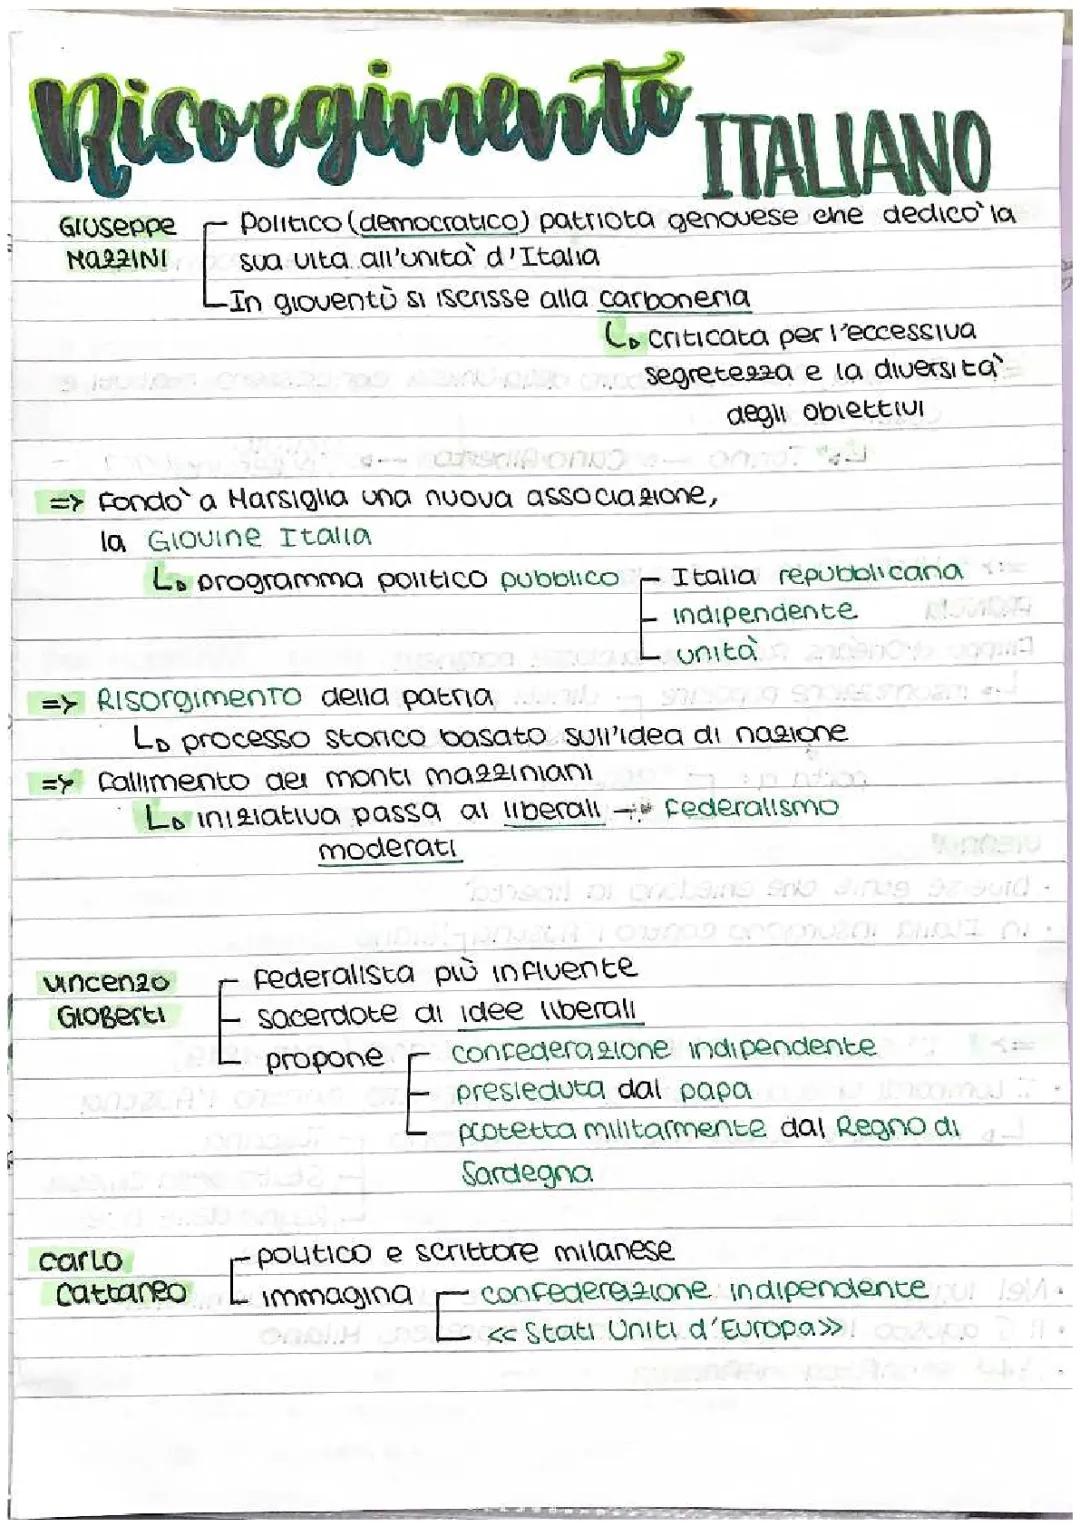 Risorgimento ITALIANO
Giuseppe Mazzini
Politico (democratico) patriota genovese che dedicò la
sua vita all'unità d'Italia
In gioventù si iscrisse alla carboneria
criticata per l'eccessiva
segretezza e la diversità
degli obiettivi
=> Fondò a Marsiglia una nuova associazione,
la Giovine Italia
programma politico pubblico
Italia repubblicana
indipendente
unità
=> Risorgimento della patria
processo storico basato sull'idea di nazione
=> fallimento dei monti mazziniani
iniziativa passa ai liberali → Federalismo
moderati
Vincenzo Gioberti
Federalista più influente
sacerdote di idee liberali
propone
confederazione indipendente
presieduta dal papa
protetta militarmente dal Regno di
Sardegna
Carlo Cattaneo
politico e scrittore milanese
immagina
confederazione indipendente
<< Stati Uniti d'Europa>>